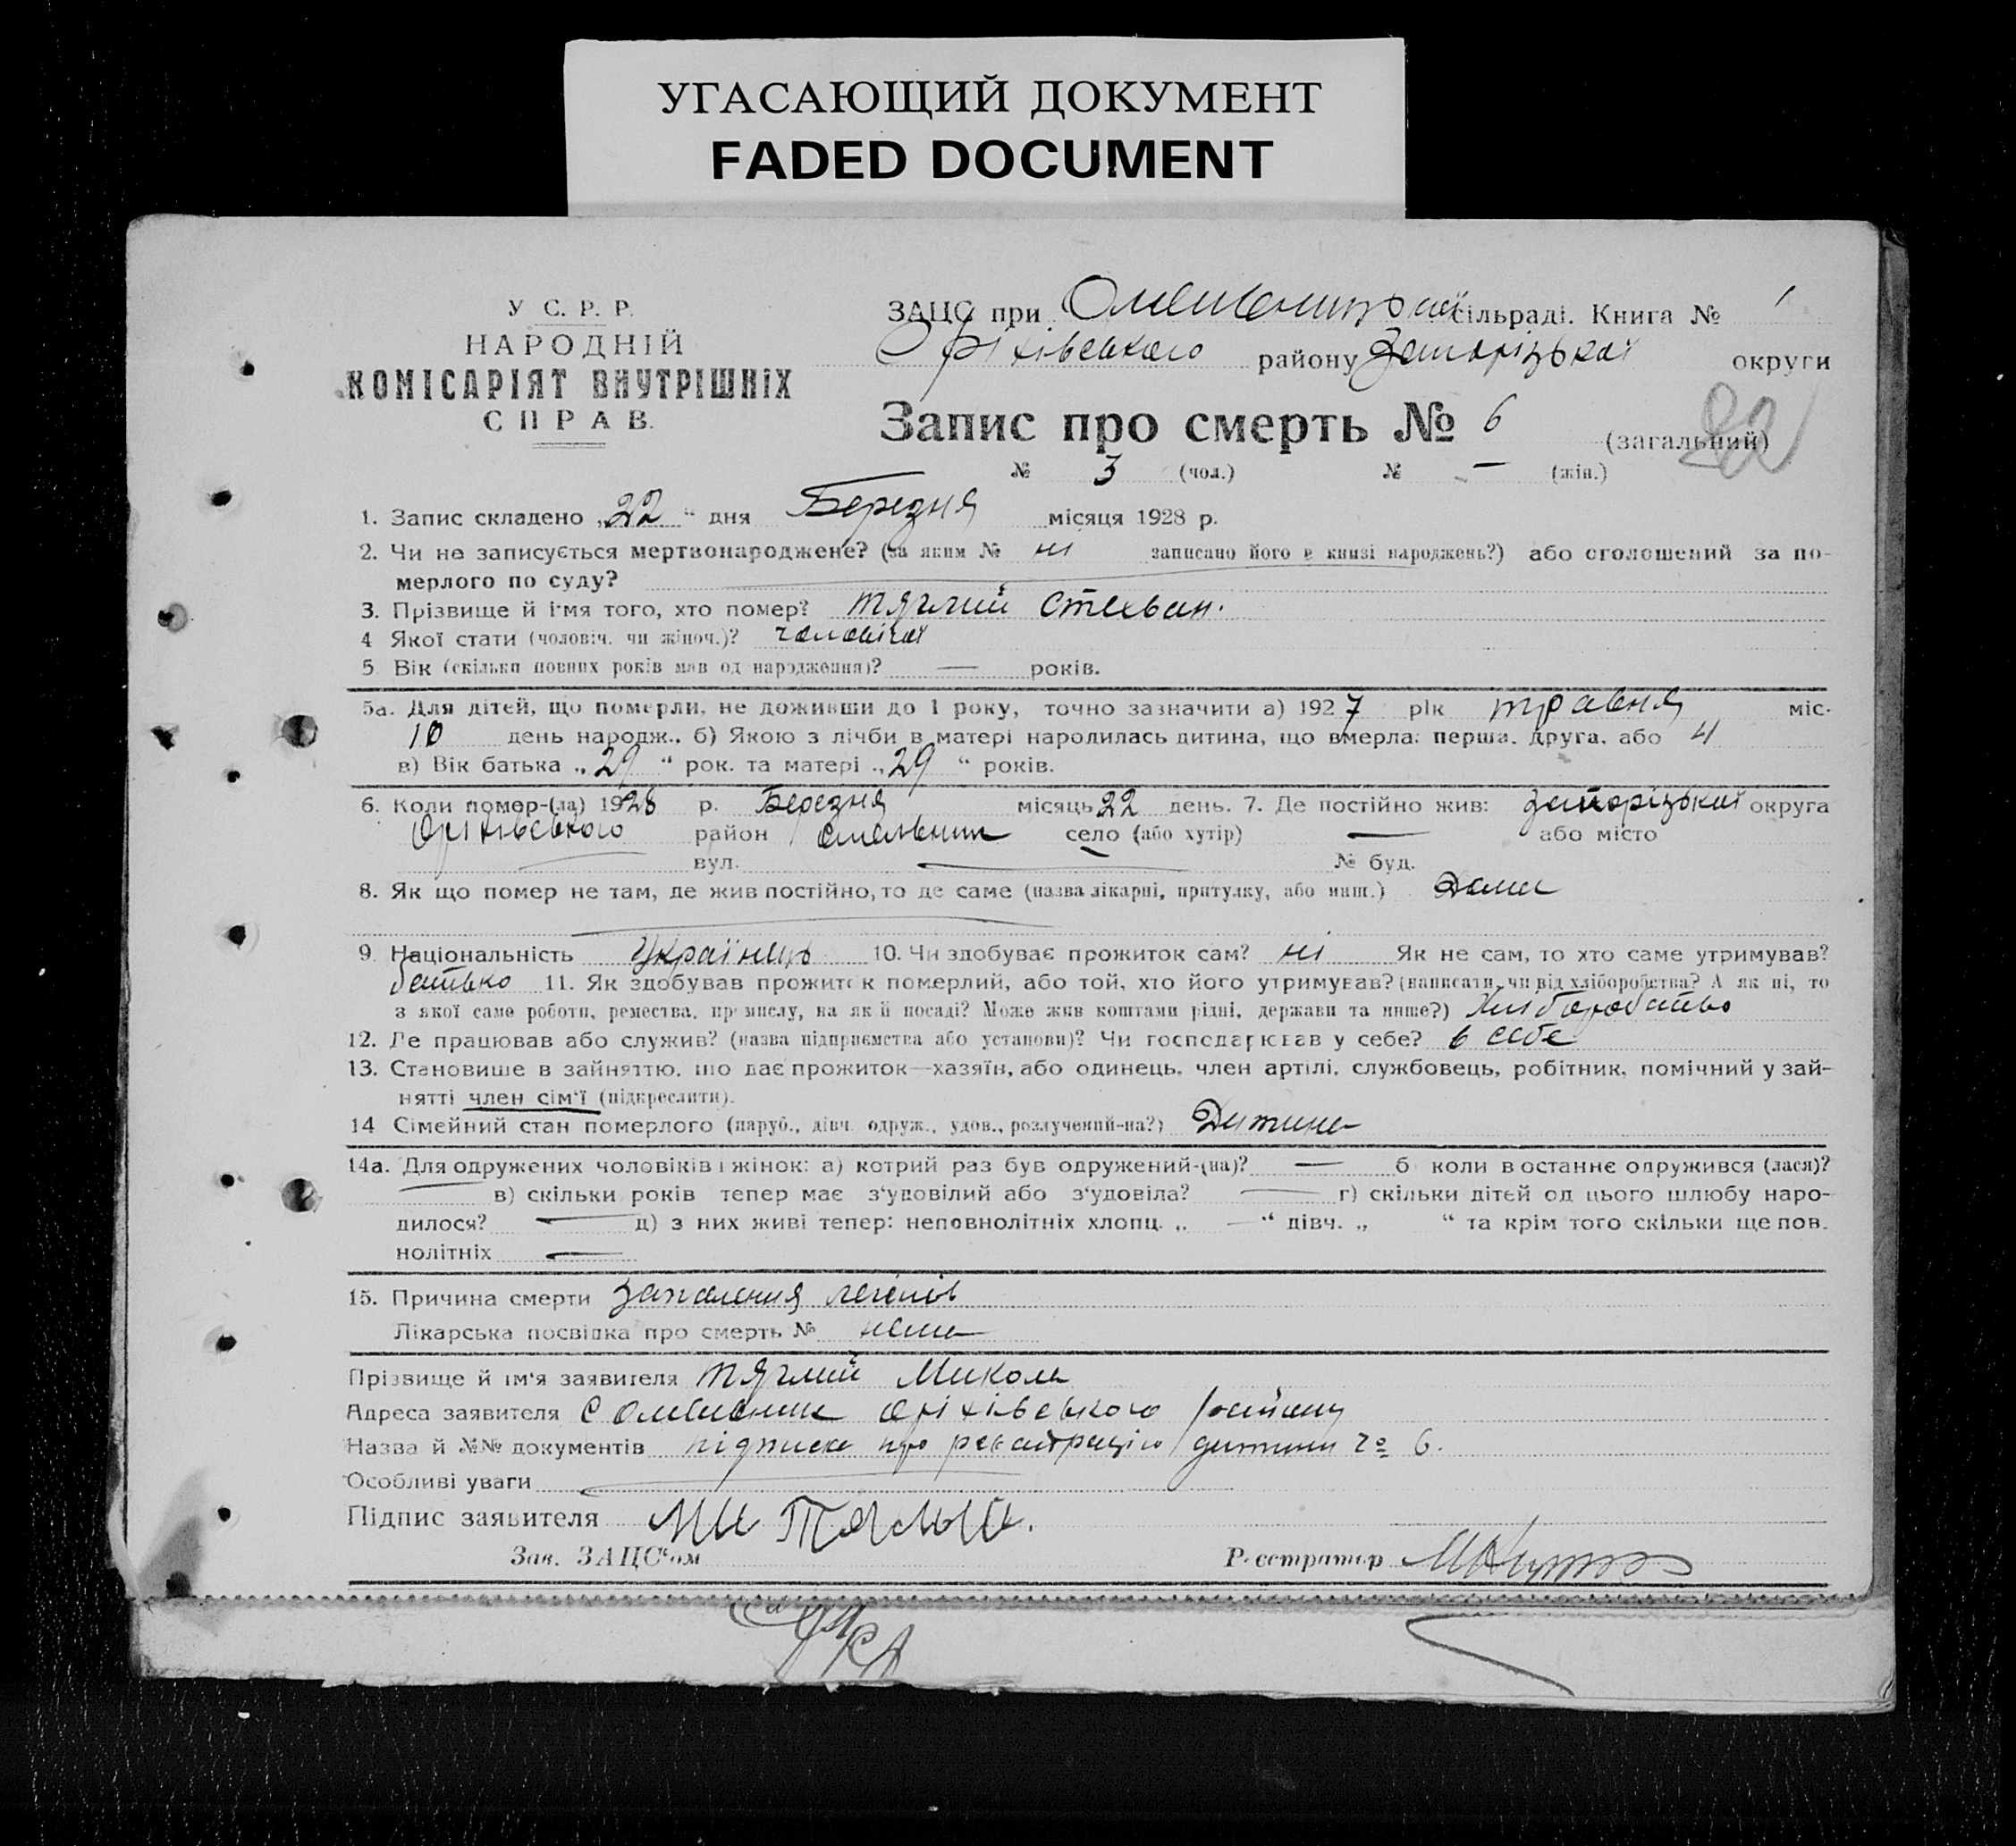 УГАСАЮЩИЙ ДОКУМЕНТ
FADED DOCUMENT
У С. Р. Р.
НАРОДНІЙ
КОМІСАРІЯТ ВНУТРІШНІХ
СПРАВ.
ЗАЦС при сільраді. Книга № 1
Оріхівського району Запорізької округи
Запис про смерть № 6 (загальний)
№ 3 (чол.) № — (жін.)
22
1. Запис складено „22" дня Березня місяця 1928 р.
2. Чи не записується мертвонароджене? (за яким № ні записано його в книзі народжень?) або оголошений за по-
мерлого по суду?
3. Прізвище й ім'я того, хто помер? Тяглий Стехван.
4 Якої стати (чоловіч. чи жіноч.)? чоловічої
5 Вік (скільки повних років мав од народження)? — років.
5а. Для дітей, що померли, не доживши до 1 року, точно зазначити а) 1927 рік травня міс.
10 день народж., б) Якою з лічби в матері народилась дитина, що вмерла: перша, друга, або 4
в) Вік батька „29" рок. та матері „29" років.
6. Коли помер-(ла) 1928 р. Березня місяць 22 день. 7. Де постійно жив: Запорізької округа
Оріхівського район село (або хутір) — або місто
вул. — № буд.
8. Як що помер не там, де жив постійно, то де саме (назва лікарні, притулку, або инш.) Дома
9. Національність Українець 10. Чи здобуває прожиток сам? ні Як не сам, то хто саме утримував?
батько 11. Як здобував прожиток померлий, або той, хто його утримував? (написати, чи від хліборобства? А як ні, то
з якої саме роботи, ремества, промислу, на якій посаді? Може жив коштами рідні, держави та инше?) Хліборобство
12. Де працював або служив? (назва підприємства або установи)? Чи господарював у себе? в себе
13. Становище в зайняттю, що дає прожиток—хазяїн, або одинець, член артілі, службовець, робітник, помічний у зай-
нятті член сім'ї (підкреслити).
14 Сімейний стан померлого (паруб., дівч. одруж., удов., розлучений-на?) Дитина
14а. Для одружених чоловіків і жінок: а) котрий раз був одружений-(на)? — б коли в останнє одружився (лася)?
— в) скільки років тепер має з'удовілий або з'удовіла? — г) скільки дітей од цього шлюбу наро-
дилося? — д) з них живі тепер: неповнолітніх хлопц. „ —" дівч. „ " та крім того скільки ще пов.
нолітніх —
15. Причина смерти запалення легенів
Лікарська посвідка про смерть № нема
Прізвище й ім'я заявителя Тяглий Микола
Адреса заявителя С Оріхівського району
Назва й №№ документів підписка про регистрацію дитини № 6.
Особливі уваги
Підпис заявителя
Зав. ЗАЦС'ом Реєстратор